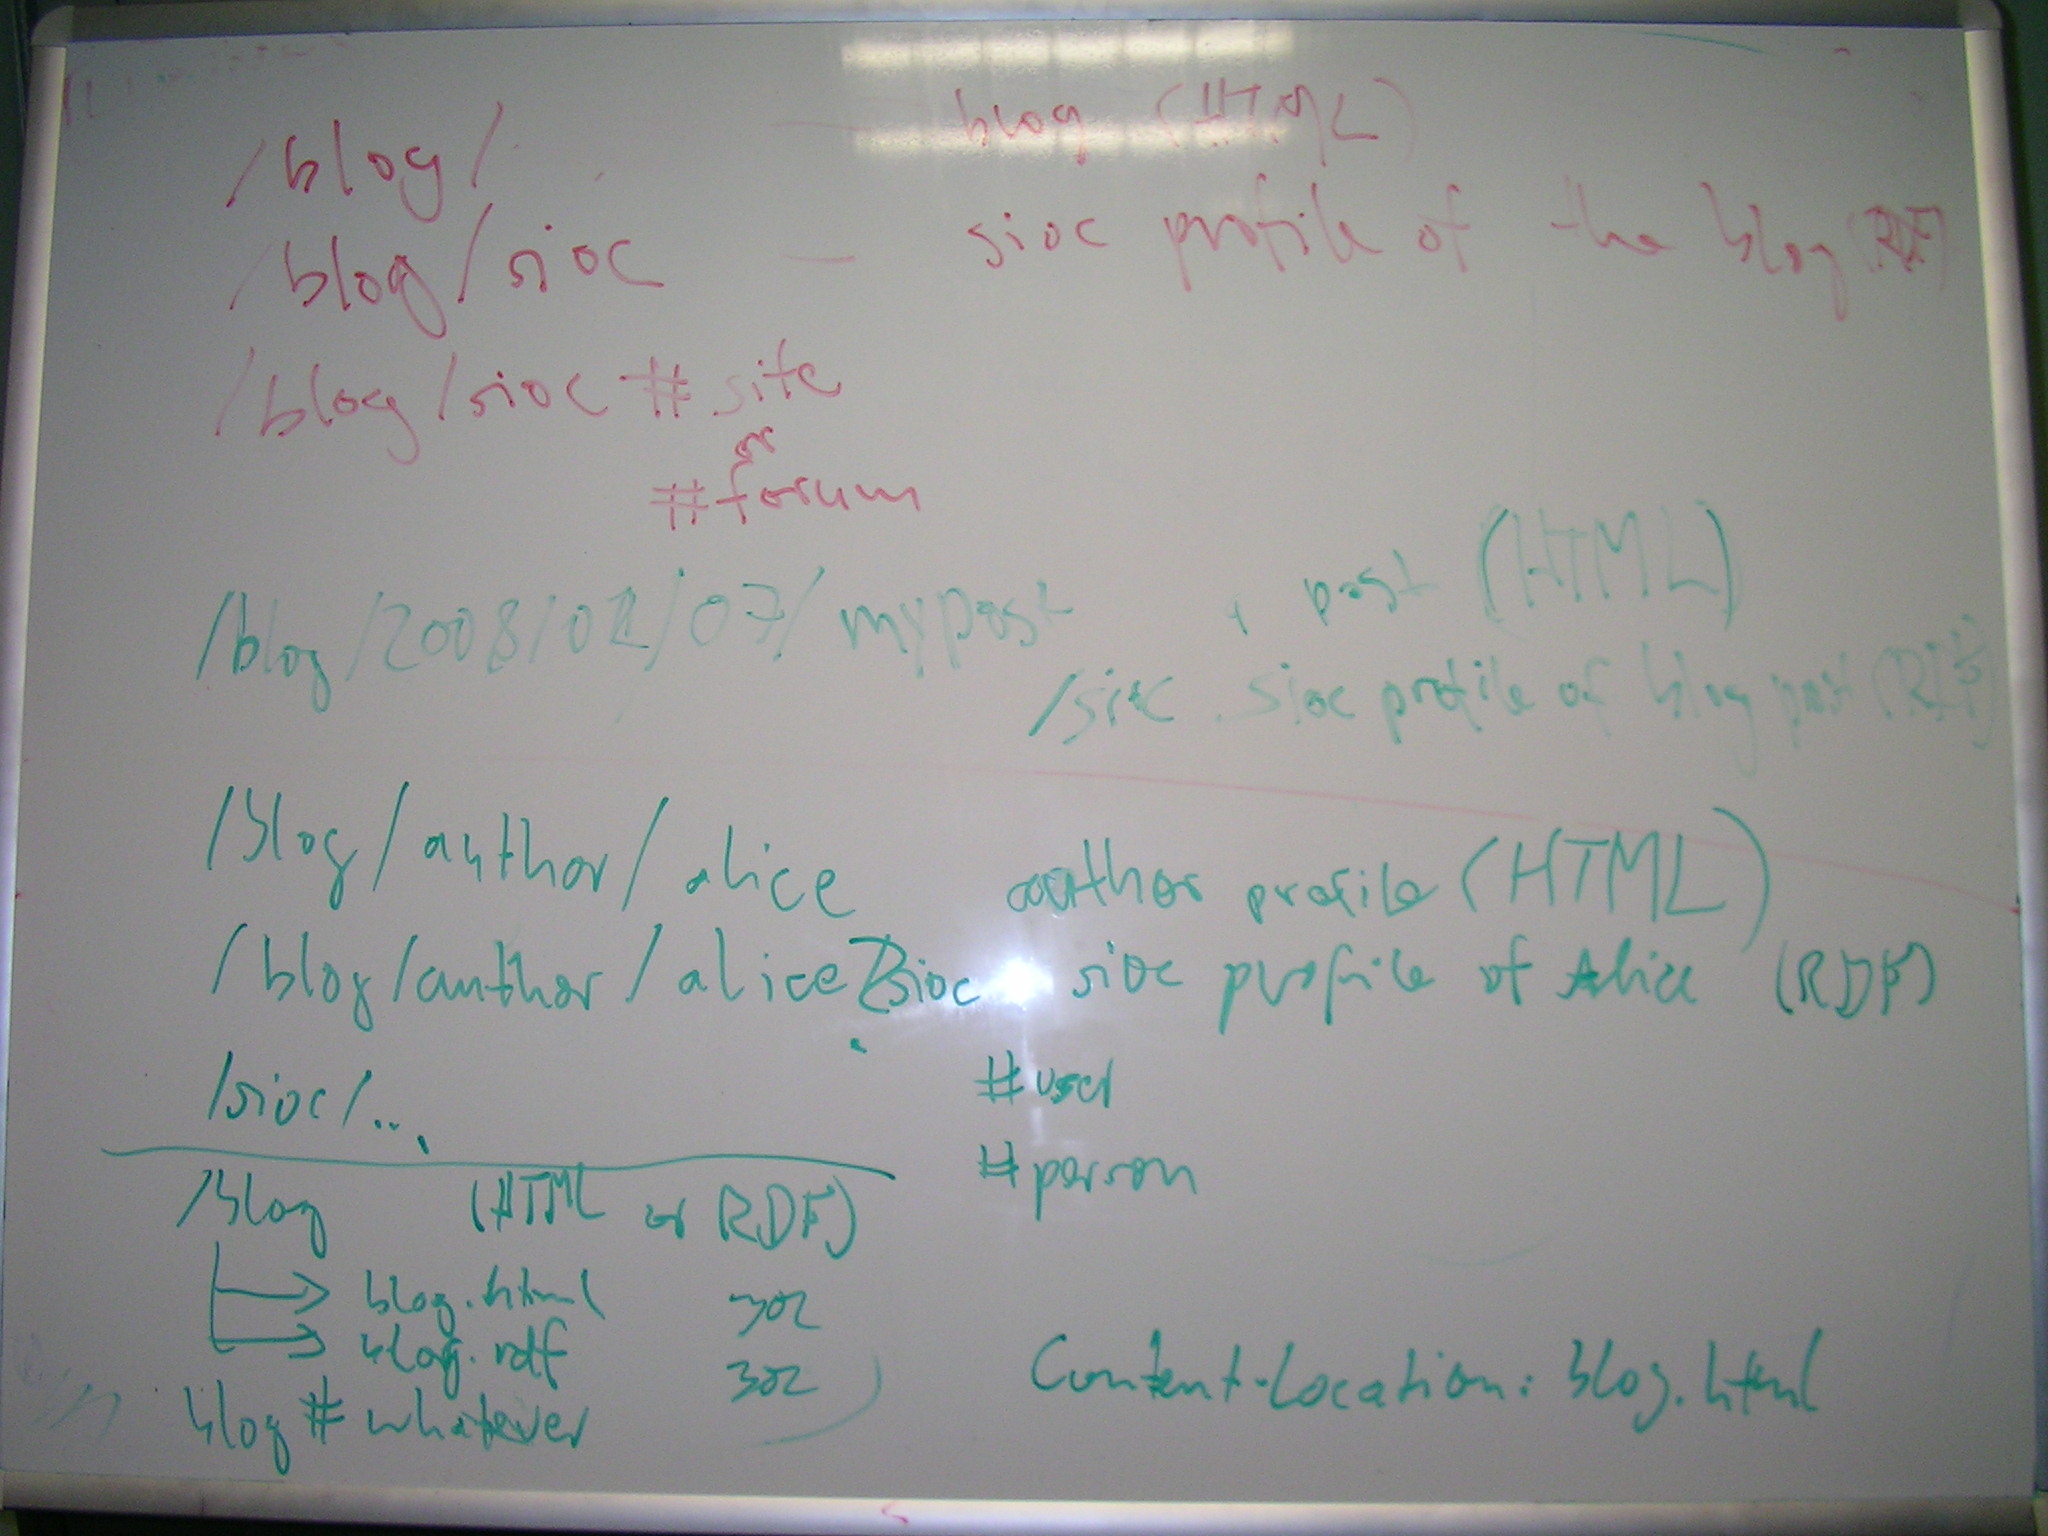 /blog/ – blog (HTML)
/blog/sioc – sioc profile of the blog (RDF)
/blog/sioc #site
or
#forum
/blog/2008/02/07/mypost post (HTML)
/sioc sioc profile of blog post (RDF)
/blog/author/alice author profile (HTML)
/blog/author/alice?sioc sioc profile of Alice (RDF)
/sioc/... #user
#person
/blog (HTML or RDF)
blog.html 302
blog.rdf 302
blog#whatever
Content-Location: blog.html